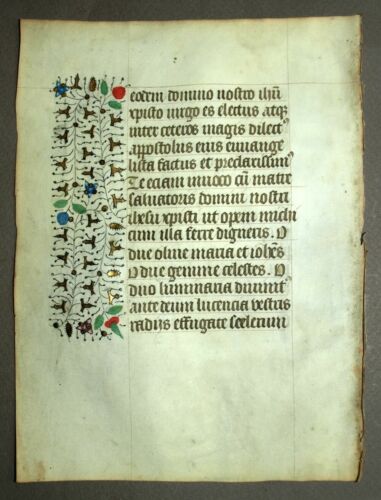 eodem domino nostro ihu
xpisto uirgo es electus atq3
inter ceteros magis dilect9
appostolus eius euuange
lista factus et preclarissim9
Te eciam inuoco cū matre
saluatoris domini nostri
ihesu xpisti ut opem michi
cum illa ferre digneris. O
due oliue maria et iohēs
O due gemme celestes. O
duo luminaria diuinit9
ante deum lucencia vestris
radijs effugate scelerum